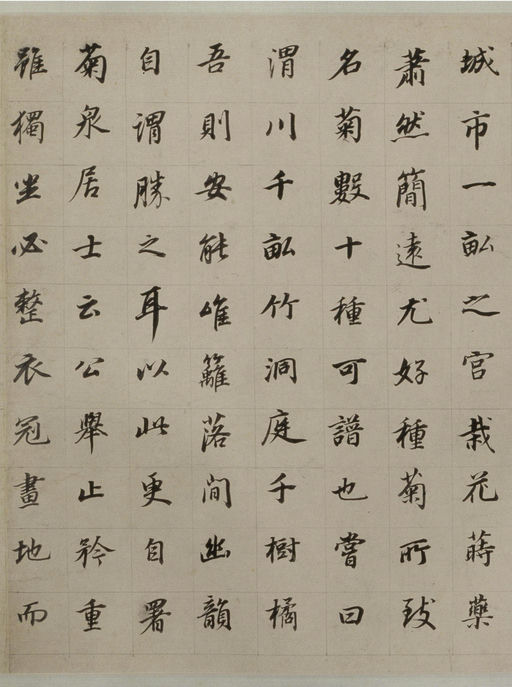 城市一畝之宫栽花蒔藥
蕭然簡遠尤好種菊所致
名菊數十種可譜也嘗曰
渭川千畝竹洞庭千樹橘
吾則安能唯籬落間幽韻
自謂勝之耳以此更自署
菊泉居士云公舉止矜重
雖獨坐必整衣冠畫地而